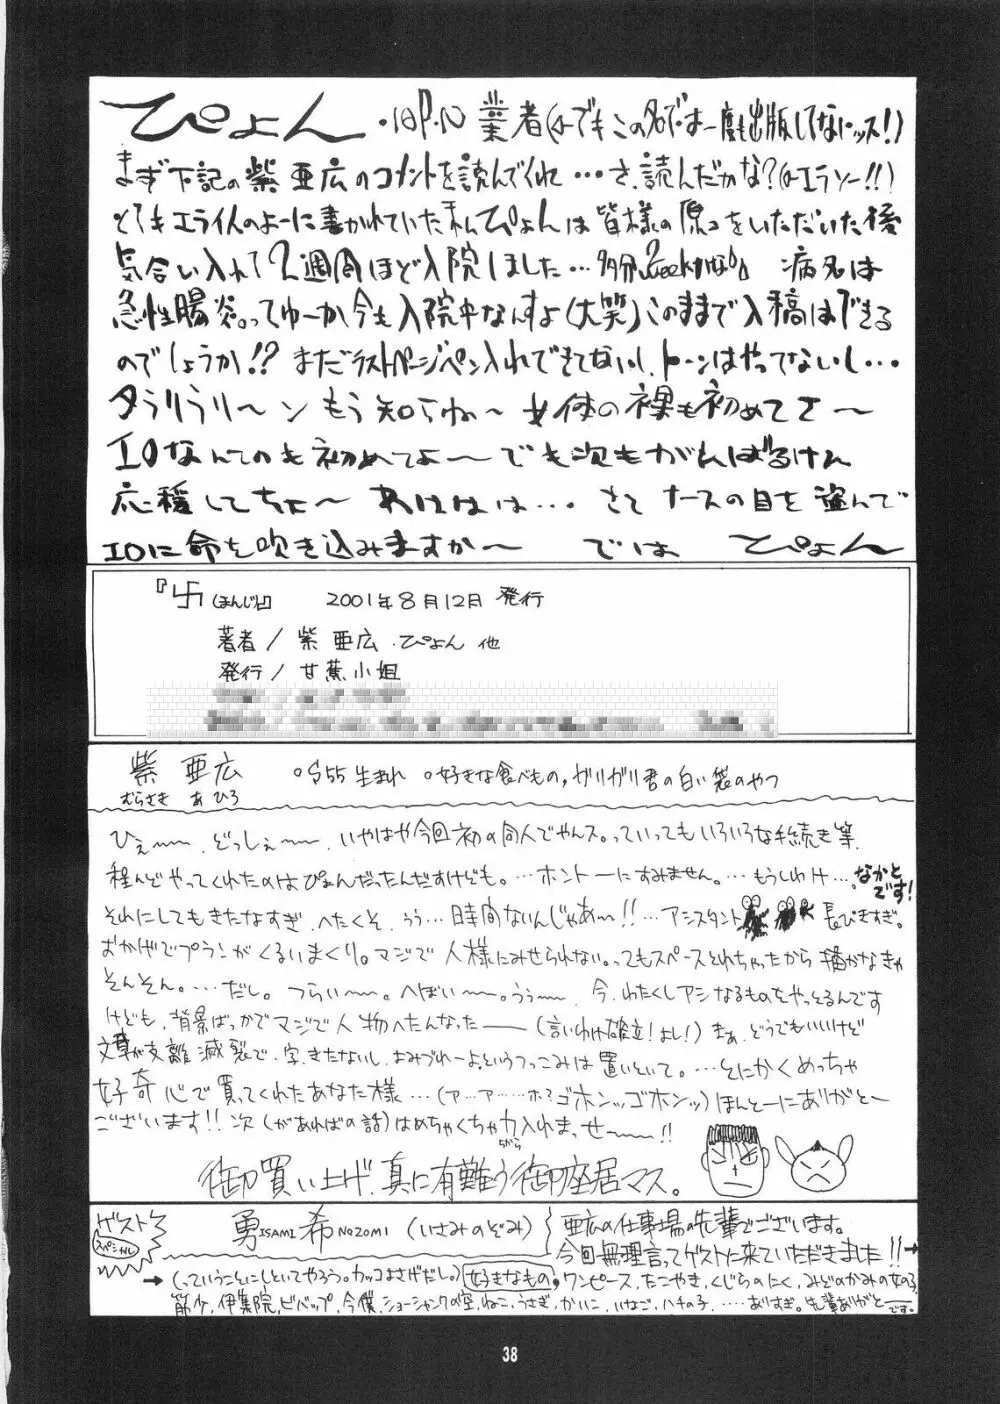 ぴょん ・10P.N 業者(←でもこの名では一度も出版してないッス!)
まず下記の紫亜広のコメントを読んでくれ…さ、読んだかな?(←エラソー!!)
とてもエライ人のよーに書かれていた私ぴょんは皆様の原コをいただいた後
気合い入れて2週間ほど入院しました… 病名は
急性腸炎。ってゆーか今も入院中なんすよ(大笑)このままで入稿はできる
のでしょうか!? まだラストページペン入れできてないし、トーンはやってないし…
タラリラリ〜ン もう知らね〜 女体の裸も初めてさ〜
エロなんてのも初めてよ〜 でも次もがんばるけん
応援してちょ〜 あははは… さて ナースの目を盗んで
エロに命を吹き込みますか〜 では ぴょん
『卐(まんじ)』 2001年8月12日 発行
著者/紫 亜広・ぴょん 他
発行/甘蕉小姐
紫 亜広 ○S55生まれ ○好きな食べもの,ガリガリ君の白い袋のやつ
むらさき あひろ
ひぇ〜〜、どっしぇ〜〜、いやはや今回初の同人でやんス。っていってもいろいろな手続き等、
殆んどやってくれたのはぴょんだったんだすけども。…ホントーにすみません。…もうしわけ…なかとです!
それにしてもきたなすぎ、へたくそ、うぅ…時間ないんじゃあ〜!!…アシスタント 長びきすぎ。
おかげでプランがくるいまくり。マジで人様にみせられない。ってもスペースとれちゃったから描かなきゃ
そんそん。…だし。つらい〜〜。へぼい〜〜。うぅ〜〜、今、わたくしアシなるものをやってるんです
けども、背景ばっかでマジで人物へたんなった――(言いわけ確立!よし!)まぁ、どうでもいいけど
文章が支離滅裂で、字、きたないし、よみづれーよ。というつっこみは置いといて。…とにかくめっちゃ
好奇心で買ってくれたあなた様…(ア…ア……ホ?ゴホンッゴホンッ)ほんとーにありがとー
ございます!!次(があればの話)はめちゃくちゃ力入れまっせ〜〜!!
ながら
御買い上げ、真に有難う御座居マス。
ゲスト スペシャル 勇ISAMI 希NOZOMI (いさみのぞみ) 亜広の仕事場の先輩でございます。
今回無理言ってゲストに来ていただきました!!→
→(っていうことにしといてやろう。カッコよさげだし。) 好きなもの,ワンピース、たこやき、くじらのにく、みどりのかみの女の子,
筋少、伊集院、ビバップ、今僕、ショーシャンクの空、ねこ、うさぎ、かいこ、いなご、ハチの子、……ありすぎ。先輩ありがとーです。
38